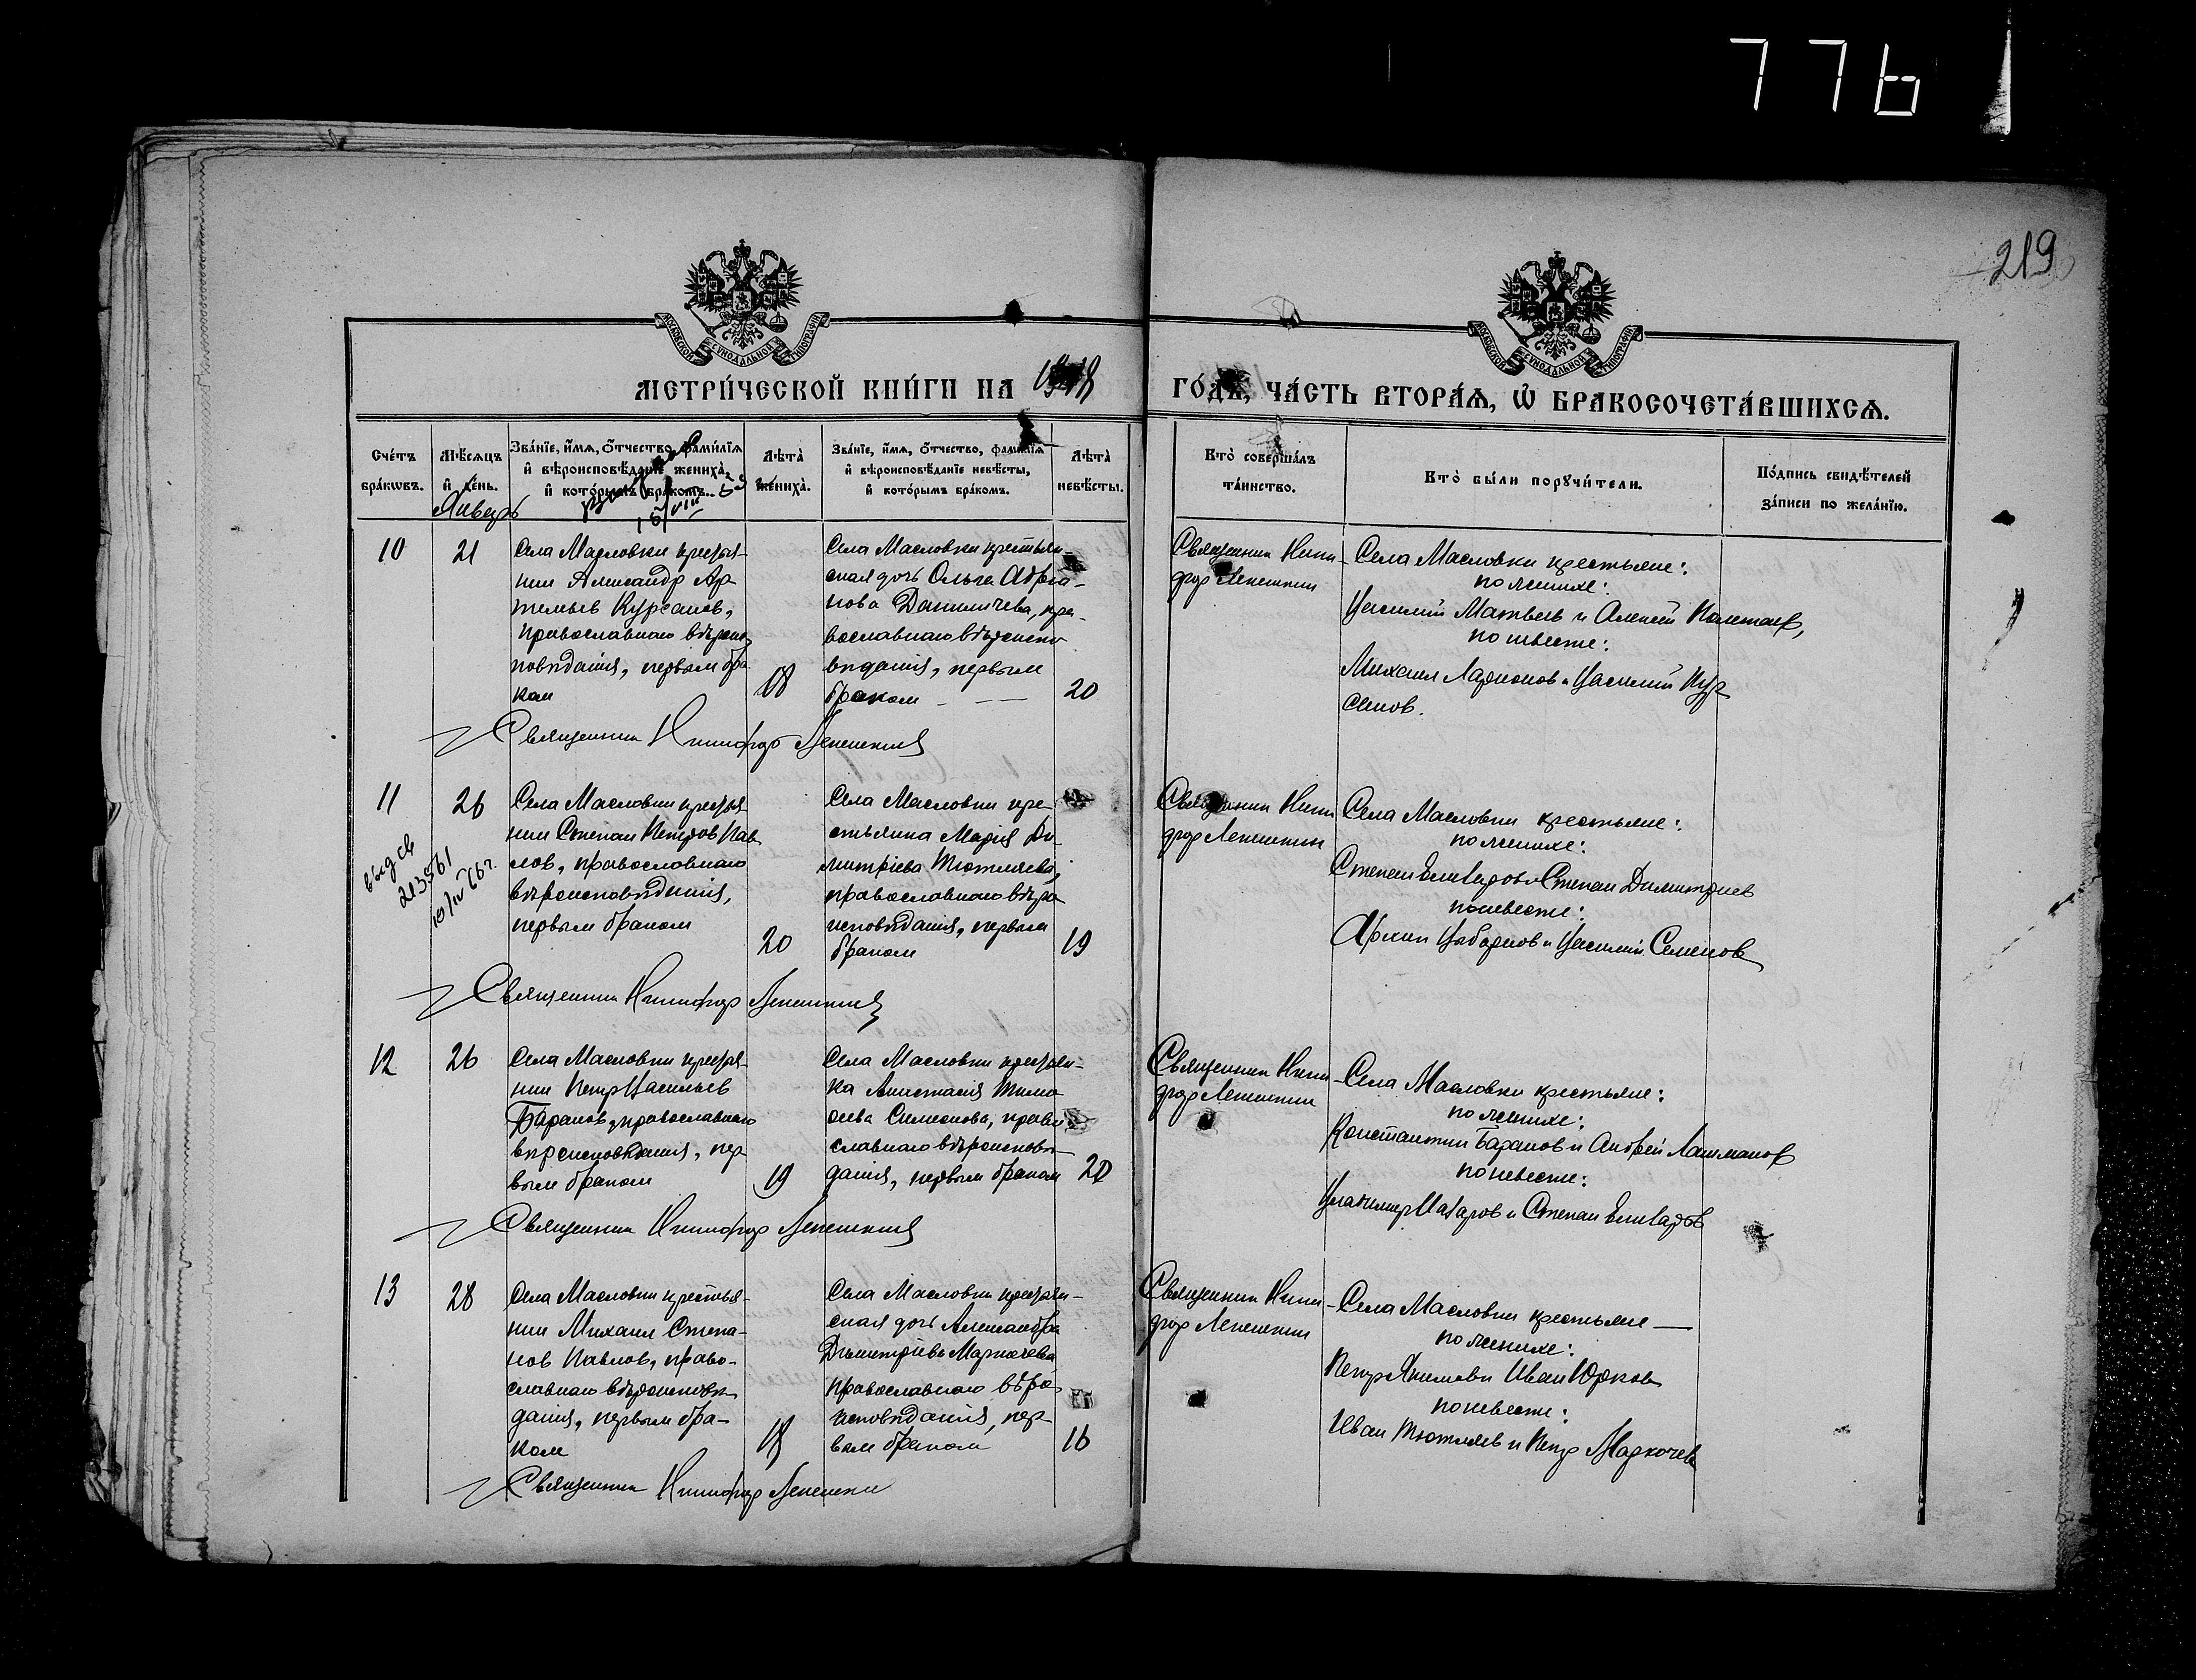 776
219
МОСКОВСКОЙ СѴНОДАЛЬНОЙ ТИПОГРАФІИ
МОСКОВСКОЙ СѴНОДАЛЬНОЙ ТИПОГРАФІИ
МЕТРИ́ЧЕСКОЙ КНИ́ГИ НА
ГО́ДЪ, ЧА́СТЬ ВТОРА́Я, Ѽ БРАКОСОЧЕТА́ВШИХСЯ.
Сче́тъ бра́кѡвъ.
Мѣ́сяцъ и де́нь.
Зва́нїе, и́мя, о́тчество, фами́лїя и вѣроисповѣ́данїе жениха̀, и кото́рымъ бра́комъ.
Лѣта̀ жениха̀.
Зва́нїе, и́мя, о́тчество, фами́лїя и вѣроисповѣ́данїе невѣ́сты, и кото́рымъ бра́комъ.
Лѣта̀ невѣ́сты.
Кто̀ соверша́лъ та́инство.
Кто̀ бы́ли порꙋчи́тели.
По́дпись свидѣ́телей за́писи по жела́нїю.
Январь
10
21
Села Масловки крестья-
нин Александр Ар
темьев Курсаков,
православнаго вѣроис
повѣданія, первым бра
ком
18
Села Масловки крестьян-
ская дочь Ольга
православнаго вѣроиспо
вѣданія, первым
браком
20
Священник Ники
фор Лепешкин
Села Масловки крестьяне:
по женихе:
Василий Матвеев и Алексей
по невесте:
Михаил Ларионов и Василий
Священник Никифор Лепешкин
11
26
выд св
213561
10/IV 66 г.
Села Масловки крестья
нин Степан Петров Пав
лов, православнаго
вѣроисповѣданія,
первым браком
20
Села Масловки кре-
стьянка Мария Ди-
митріева Тютмяева,
православнаго вѣро
исповѣданія, первым
браком
19
Священник Ники
фор Лепешкин
Села Масловки крестьяне:
по женихе:
Степан и Степан Димитриев
по невесте:
и Василий Семенов
Священник Никифор Лепешкин
12
26
Села Масловки крестья-
нин Петр Васильев
Баранов, православнаго
вѣроисповѣданія, пер
вым браком
19
Села Масловки крестьян-
ка Анастасия Тимо
Симеонова, право
славнаго вѣроисповѣ
данія, первым браком
20
Священник Ники
фор Лепешкин
Села Масловки крестьяне:
по женихе:
Константин Баранов и Андрей Лашманов
по невесте:
Владимир Макаров и Степан
Священник Никифор Лепешкин
13
28
Села Масловки крестья-
нин Михаил Степа-
нов Павлов, право-
славнаго вѣроисповѣ
данія, первым бра-
ком
18
Села Масловки крестьян-
ская дочь Александра
Димитріева Маркочева
православнаго вѣро
исповѣданія, пер-
вым браком
16
Священник Ники
фор Лепешкин
Села Масловки крестьяне
по женихе:
Петр Якимов и Иван Юрков
по невесте:
Иван Тютмяев и Петр Маркочев
Священник Никифор Лепешкин